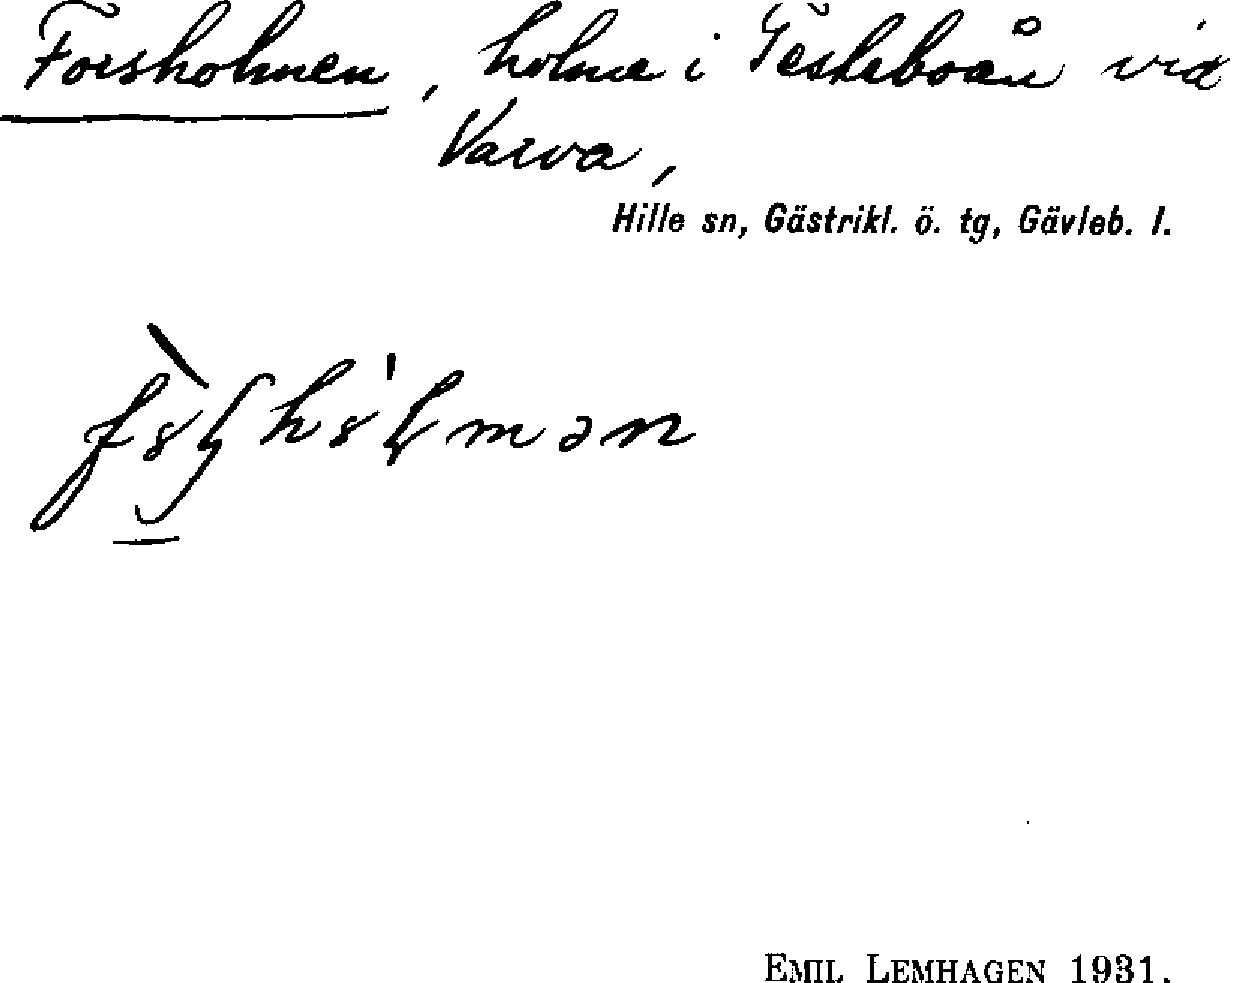 Forsholmen, holme i Testeboån vid
Varva,
Hille sn, Gästrikl. ö. tg, Gävleb. l.
EMIL LEMHAGEN 1931.